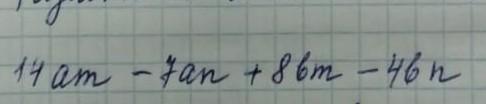 14am - 7an + 8bm - 4bn